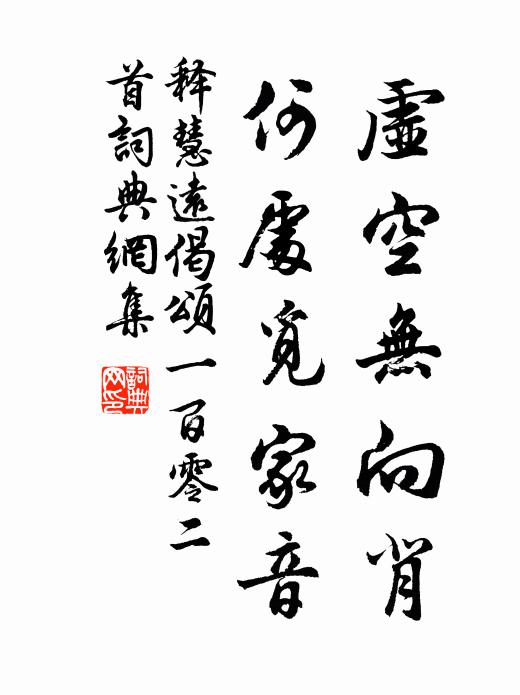 虛空無向背
何處覓家音
释慧遠偈頌一百零二
首詞典網集
詞典
网印